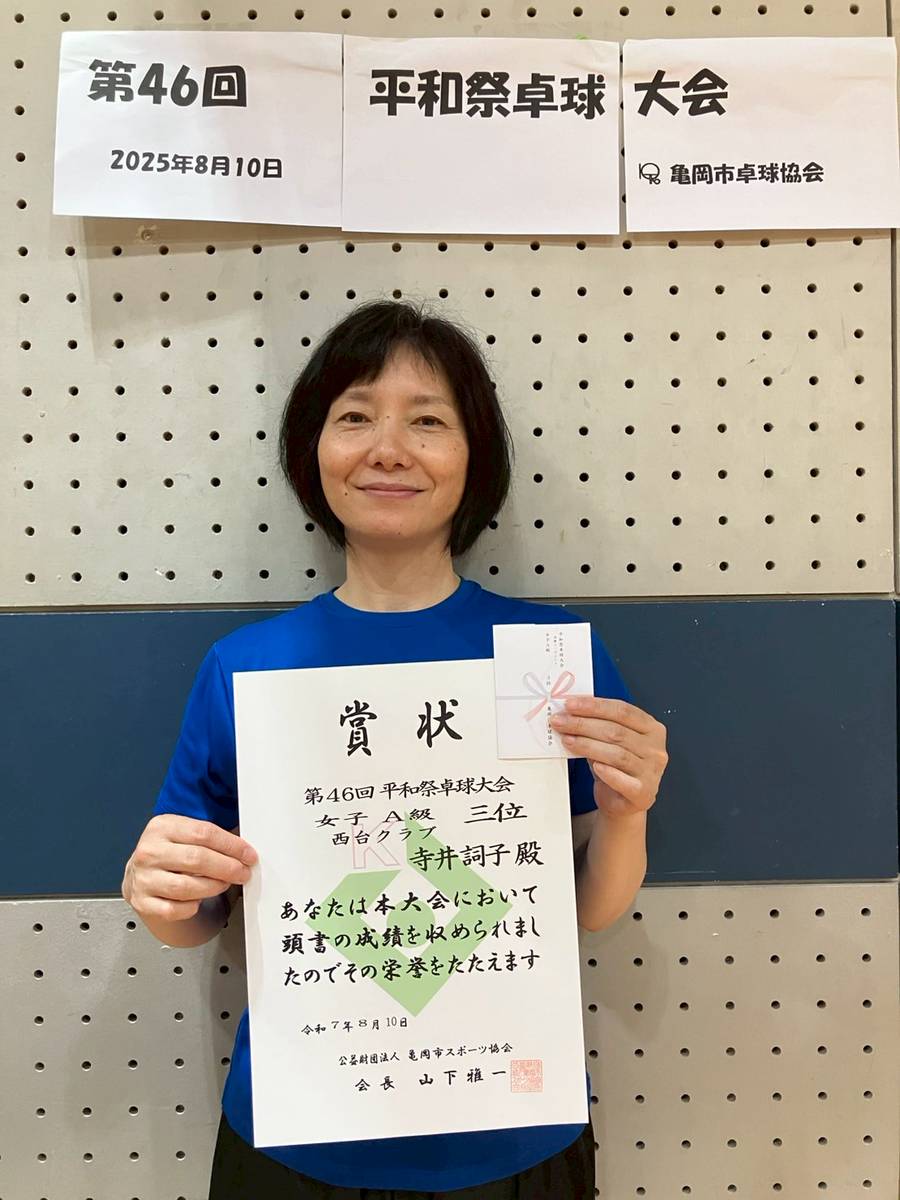 第46回 平和祭卓球 大会
2025年8月10日
亀岡市卓球協会
平和祭卓球大会
女子A級
3位
賞状
第46回 平和祭卓球大会
女子 A級 三位
西台クラブ
寺井詞子殿
あなたは本大会において
頭書の成績を収められまし
たのでその栄誉をたたえます
令和7年8月10日
公益財団法人 亀岡市スポーツ協会
会長 山下雅一